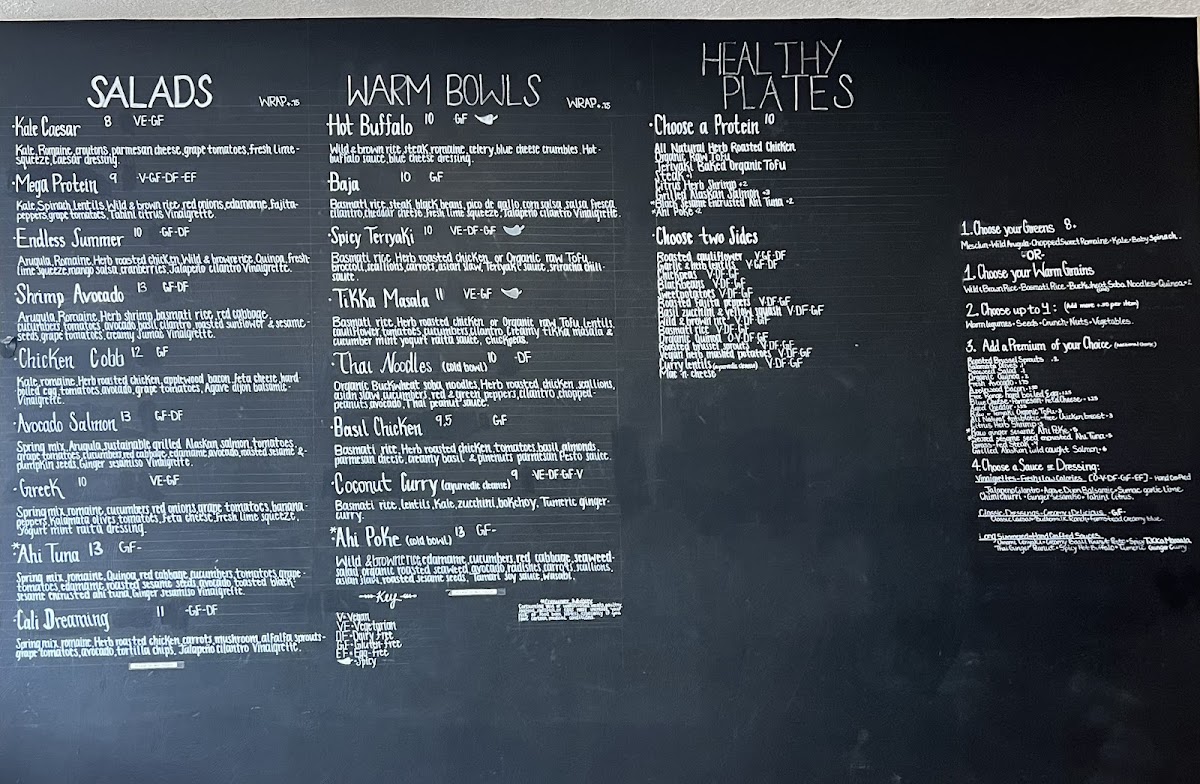 SALADS WRAP+.75
·Kale Caesar 8 VE-GF
Kale, Romaine, croutons, parmesan cheese, grape tomatoes, fresh lime-
squeeze, Caesar dressing.
·Mega Protein 9 -V-GF-DF-EF
Kale, Spinach, Lentils, Wild & brown rice, red onions, edamame, Fajita-
peppers, grape tomatoes, Tahini citrus Vinaigrette.
·Endless Summer 10 -GF-DF
Arugula, Romaine, Herb roasted chicken, Wild & brown rice, Quinoa, fresh-
lime squeeze, mango salsa, cranberries, Jalapeño cilantro Vinaigrette.
·Shrimp Avocado 13 GF-DF
Arugula, Romaine, Herb shrimp, basmati rice, red cabbage,
cucumbers, tomatoes, avocado, basil, cilantro, roasted sunflower & sesame-
seeds, grape tomatoes, creamy Sumac Vinaigrette.
·Chicken Cobb 12 GF
Kale, romaine, Herb roasted chicken, applewood bacon, feta cheese, hard-
boiled egg, tomatoes, avocado, grape tomatoes, Agave dijon balsamic-
Vinaigrette.
·Avocado Salmon 13 GF-DF
Spring mix, Arugula, sustainable grilled Alaskan salmon, tomatoes,
grape tomatoes, cucumbers, red cabbage, edamame, avocado, roasted sesame &
pumpkin seeds, Ginger sesamiso Vinaigrette.
·Greek 10 VE-GF
Spring mix, romaine, cucumbers, red onions, grape tomatoes, banana-
peppers, Kalamata olives, tomatoes, feta cheese, fresh lime squeeze,
yogurt mint raita dressing.
*Ahi Tuna 13 GF-
Spring mix, romaine, Quinoa, red cabbage, cucumbers, tomatoes, grape-
tomatoes, edamame, roasted sesame seeds, avocado, toasted black
sesame encrusted ahi tuna, Ginger sesamiso Vinaigrette.
·Cali Dreaming 11 -GF-DF
Spring mix, romaine, Herb roasted chicken, carrots, mushroom, alfalfa sprouts-
grape tomatoes, avocado, tortilla chips, Jalapeño cilantro Vinaigrette.
WARM BOWLS WRAP+.75
·Hot Buffalo 10 GF
Wild & brown rice, steak, romaine, celery, blue cheese crumbles, Hot-
buffalo sauce, blue cheese dressing.
·Baja 10 GF
Basmati rice, steak, black beans, pico de gallo, corn salsa, salsa fresca,
cilantro, cheddar cheese, fresh lime squeeze, Jalapeño cilantro Vinaigrette.
·Spicy Teriyaki 10 VE-DF-GF
Basmati rice, Herb roasted chicken or Organic raw Tofu,
broccoli, scallions, carrots, asian slaw, Teriyaki sauce, sriracha chili-
sauce.
·Tikka Masala 11 VE-GF
Basmati rice, Herb roasted chicken or Organic raw Tofu, lentils
cauliflower, tomatoes, cucumbers, cilantro, creamy tikka masala &
cucumber mint yogurt raita sauce, chickpeas.
·Thai Noodles (cold bowl) 10 -DF
Organic Buckwheat soba noodles, Herb roasted chicken, scallions,
asian slaw, cucumbers, red & green peppers, cilantro, chopped-
peanuts, avocado, Thai peanut sauce.
·Basil Chicken 9.5 GF
Basmati rice, Herb roasted chicken, tomatoes, basil, almonds,
parmesan cheese, creamy basil & pinenuts parmesan pesto sauce.
·Coconut Curry (ayurvedic cleanse) 9 VE-DF-GF-V
Basmati rice, lentils, Kale, zucchini, bok choy, Tumeric ginger-
curry.
*Ahi Poke (cold bowl) 13 GF-
Wild & brown rice, edamame, cucumbers, red cabbage, seaweed-
salad, organic roasted seaweed, avocado, radishes, carrots, scallions,
asian slaw, roasted sesame seeds, Tamari soy sauce, wasabi.
Key
V-Vegan
VE-Vegetarian
DF-Dairy Free
GF-Gluten Free
EF-Egg-Free
-Spicy
HEALTHY
PLATES
·Choose a Protein 10
All Natural Herb Roasted Chicken
Organic Raw Tofu
Teriyaki Baked Organic Tofu
Steak +1
Citrus Herb Shrimp +2
Grilled Alaskan Salmon +3
*Black Sesame Encrusted Ahi Tuna +2
*Ahi Poke +2
·Choose two Sides
Roasted cauliflower V-GF-DF
Garlic & herb lentils V-GF-DF
Chickpeas V-DF-GF
Blackbeans V-DF-GF
Sweetpotatoes V-DF-GF
Roasted fajita peppers V-DF-GF
Basil zucchini & yellow squash V-DF-GF
Wild & brown rice V-DF-GF
Basmati rice V-DF-GF
Organic Quinoa O-V-DF-GF
Roasted brussel sprouts V-DF-GF
Vegan herb mashed potatoes V-DF-GF
Curry lentils (ayurvedic cleanse) V-DF-GF
Mac n cheese
1. Choose your Greens 8.
Mesclun-Wild Arugula-Chopped Sweet Romaine-Kale-Baby Spinach.
-OR-
1. Choose your Warm Grains
Wild & Brown Rice-Basmati Rice-Buckwheat Soba Noodles-Quinoa+2
2. Choose up to 4: (Add more +.50 per item)
Warm legumes-Seeds-Crunch-Nuts-Vegetables.
3. Add a Premium of your Choice
Roasted Brussel Sprouts +2
Seaweed Salad
Organic Quinoa
Fresh Avocado
Applewood Bacon
Free Range hard boiled Egg
Blue Cheese-Parmesan-Feta Cheese
Aged Cheddar
All Natural Antibiotic-free Chicken breast-3
Citrus Herb Shrimp
*Raw ginger sesame Ahi Poke-5
*Seared sesame seed encrusted Ahi Tuna-5
Grass-fed Steak
Grilled Alaskan wild caught Salmon-6
4. Choose a Sauce or Dressing:
Vinaigrettes-Fresh Low Calories [O-V-DF-GF-EF]-Hand Crafted
Jalapeño Cilantro-Agave Dijon Balsamic-Sumac garlic Lime
Chimichurri-Ginger Sesamiso-Tahini Citrus.
Classic Dressings-Creamy Delicious -GF-
Classic Caesar-Buttermilk Ranch-Farmstead Creamy blue.
Long Simmered-Hand Crafted Sauces
Creamy Basil Pesto-Spicy Tikka Masala
Thai Ginger Peanut-Spicy Hot Buffalo-Tumeric Ginger Curry